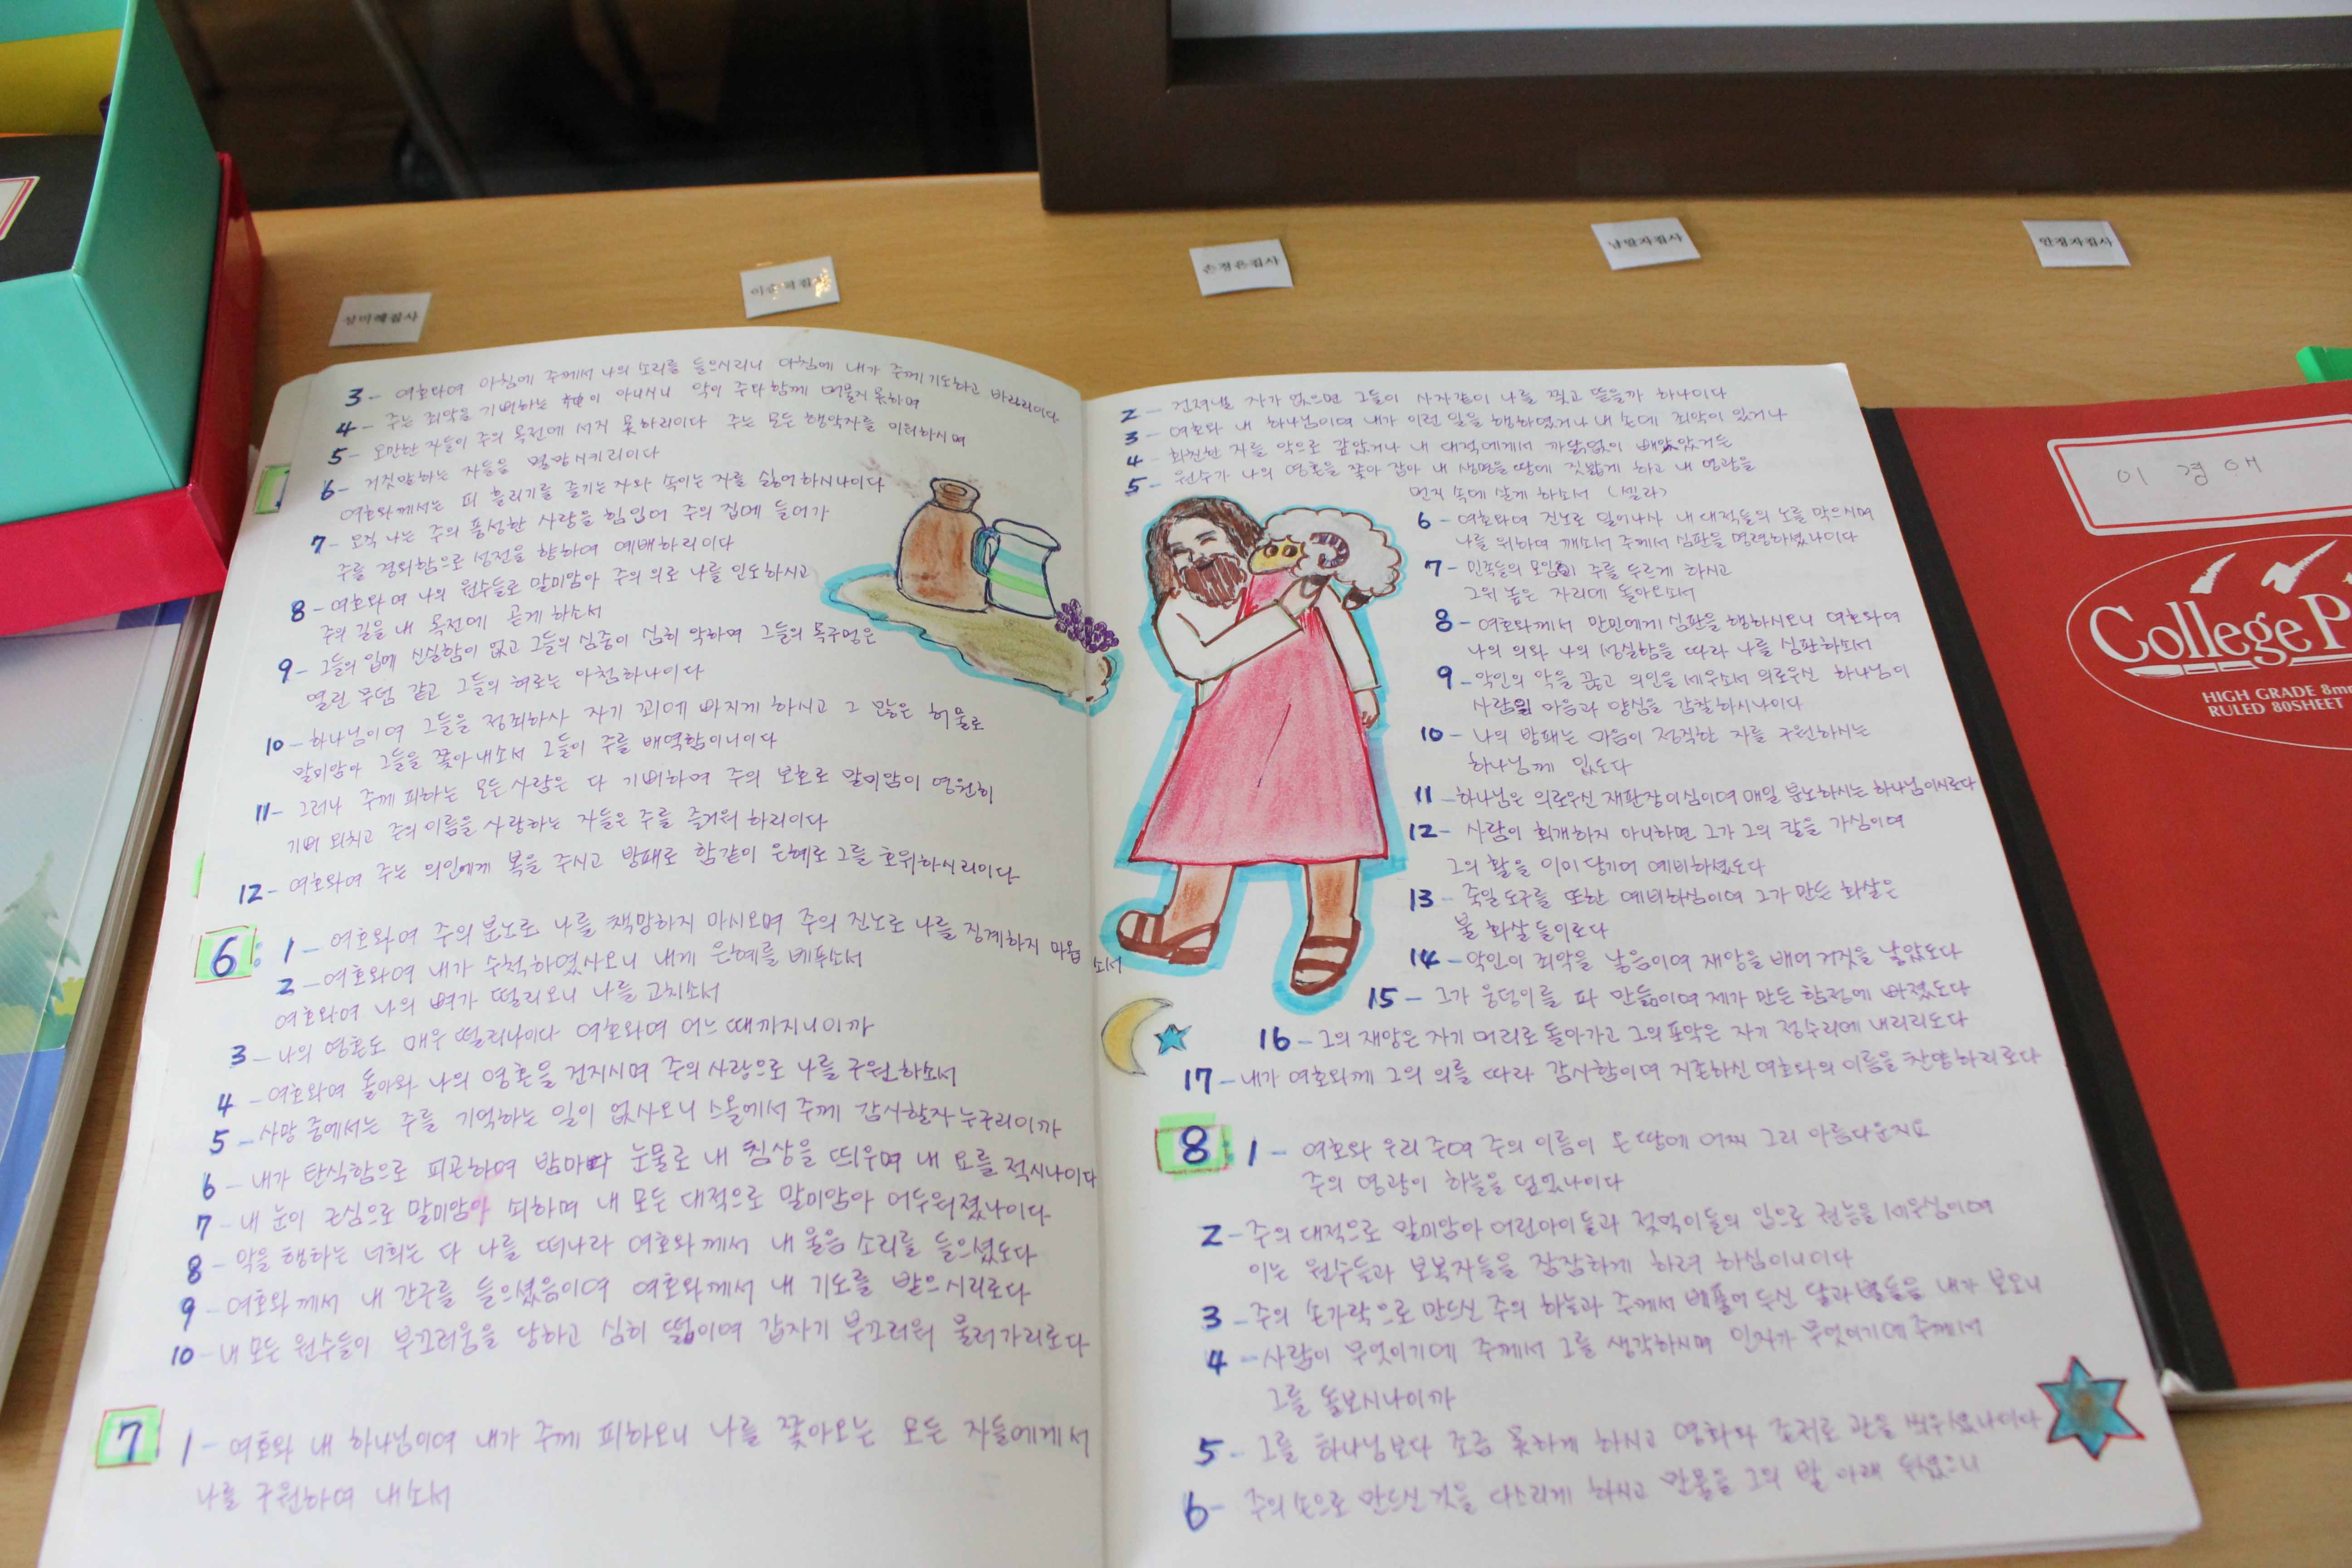 손정은집사
남말자집사
안정자집사
3 - 여호와여 아침에 주께서 나의 소리를 들으시리니 아침에 내가 주께 기도하고 바라리이다
4 - 주는 죄악을 기뻐하는 神이 아니시니 악이 주와 함께 머물지 못하며
5 - 오만한 자들이 주의 목전에 서지 못하리이다 주는 모든 행악자를 미워하시며
6 - 거짓말하는 자들을 멸망시키리이다
여호와께서는 피 흘리기를 즐기는 자와 속이는 자를 싫어하시나이다
7 - 오직 나는 주의 풍성한 사랑을 힘입어 주의 집에 들어가
주를 경외함으로 성전을 향하여 예배하리이다
8 - 여호와여 나의 원수들로 말미암아 주의 의로 나를 인도하시고
주의 길을 내 목전에 곧게 하소서
9 - 그들의 입에 신실함이 없고 그들의 심중이 심히 악하며 그들의 목구멍은
열린 무덤 같고 그들의 혀로는 아첨하나이다
10 - 하나님이여 그들을 정죄하사 자기 꾀에 빠지게 하시고 그 많은 허물로
말미암아 그들을 쫓아내소서 그들이 주를 배역함이니이다
11 - 그러나 주께 피하는 모든 사람은 다 기뻐하며 주의 보호로 말미암아 영원히
기뻐 외치고 주의 이름을 사랑하는 자들은 주를 즐거워 하리이다
12 - 여호와여 주는 의인에게 복을 주시고 방패로 함같이 은혜로 그를 호위하시리이다
6: 1 - 여호와여 주의 분노로 나를 책망하지 마시오며 주의 진노로 나를 징계하지 마옵소서
2 - 여호와여 내가 수척하였사오니 내게 은혜를 베푸소서
여호와여 나의 뼈가 떨리오니 나를 고치소서
3 - 나의 영혼도 매우 떨리나이다 여호와여 어느 때까지니이까
4 - 여호와여 돌아와 나의 영혼을 건지시며 주의 사랑으로 나를 구원하소서
5 - 사망 중에서는 주를 기억하는 일이 없사오니 스올에서 주께 감사할자 누구리이까
6 - 내가 탄식함으로 피곤하여 밤마다 눈물로 내 침상을 띄우며 내 요를 적시나이다
7 - 내 눈이 근심으로 말미암아 쇠하며 내 모든 대적으로 말미암아 어두워졌나이다
8 - 악을 행하는 너희는 다 나를 떠나라 여호와께서 내 울음 소리를 들으셨도다
9 - 여호와께서 내 간구를 들으셨음이여 여호와께서 내 기도를 받으시리로다
10 - 내 모든 원수들이 부끄러움을 당하고 심히 떪이여 갑자기 부끄러워 물러가리로다
7 1 - 여호와 내 하나님이여 내가 주께 피하오니 나를 쫓아오는 모든 자들에게서
나를 구원하여 내소서
2 - 건져낼 자가 없으면 그들이 사자같이 나를 찢고 뜯을까 하나이다
3 - 여호와 내 하나님이여 내가 이런 일을 행하였거나 내 손에 죄악이 있거나
4 - 화친한 자를 악으로 갚았거나 내 대적에게서 까닭없이 빼앗았거든
5 - 원수가 나의 영혼을 쫓아 잡아 내 생명을 땅에 짓밟게 하고 내 영광을
먼지 속에 살게 하소서 (셀라)
6 - 여호와여 진노로 일어나사 내 대적들의 노를 막으시며
나를 위하여 깨소서 주께서 심판을 명령하셨나이다
7 - 민족들의 모임이 주를 두르게 하시고
그위 높은 자리에 돌아오소서
8 - 여호와께서 만민에게 심판을 행하시오니 여호와여
나의 의와 나의 성실함을 따라 나를 심판하소서
9 - 악인의 악을 끊고 의인을 세우소서 의로우신 하나님이
사람의 마음과 양심을 감찰하시나이다
10 - 나의 방패는 마음이 정직한 자를 구원하시는
하나님께 있도다
11 - 하나님은 의로우신 재판장이심이여 매일 분노하시는 하나님이시로다
12 - 사람이 회개하지 아니하면 그가 그의 칼을 가심이여
그의 활을 이미 당기어 예비하셨도다
13 - 죽일 도구를 또한 예비하심이여 그가 만든 화살은
불 화살 들이로다
14 - 악인이 죄악을 낳음이여 재앙을 배어 거짓을 낳았도다
15 - 그가 웅덩이를 파 만듦이여 제가 만든 함정에 빠졌도다
16 - 그의 재앙은 자기 머리로 돌아가고 그의 포악은 자기 정수리에 내리리도다
17 - 내가 여호와께 그의 의를 따라 감사함이여 지존하신 여호와의 이름을 찬양하리로다
8: 1 - 여호와 우리 주여 주의 이름이 온 땅에 어찌 그리 아름다운지요
주의 영광이 하늘을 덮었나이다
2 - 주의 대적으로 말미암아 어린아이들과 젖먹이들의 입으로 권능을 세우심이여
이는 원수들과 보복자들을 잠잠하게 하려 하심이니이다
3 - 주의 손가락으로 만드신 주의 하늘과 주께서 베풀어 두신 달과 별들을 내가 보오니
4 - 사람이 무엇이기에 주께서 그를 생각하시며 인자가 무엇이기에 주께서
그를 돌보시나이까
5 - 그를 하나님보다 조금 못하게 하시고 영화와 존귀로 관을 씌우셨나이다
6 - 주의 손으로 만드신 것을 다스리게 하시고 만물을 그의 발 아래 두셨으니
이경애
College P
HIGH GRADE 8m
RULED 80SHEET